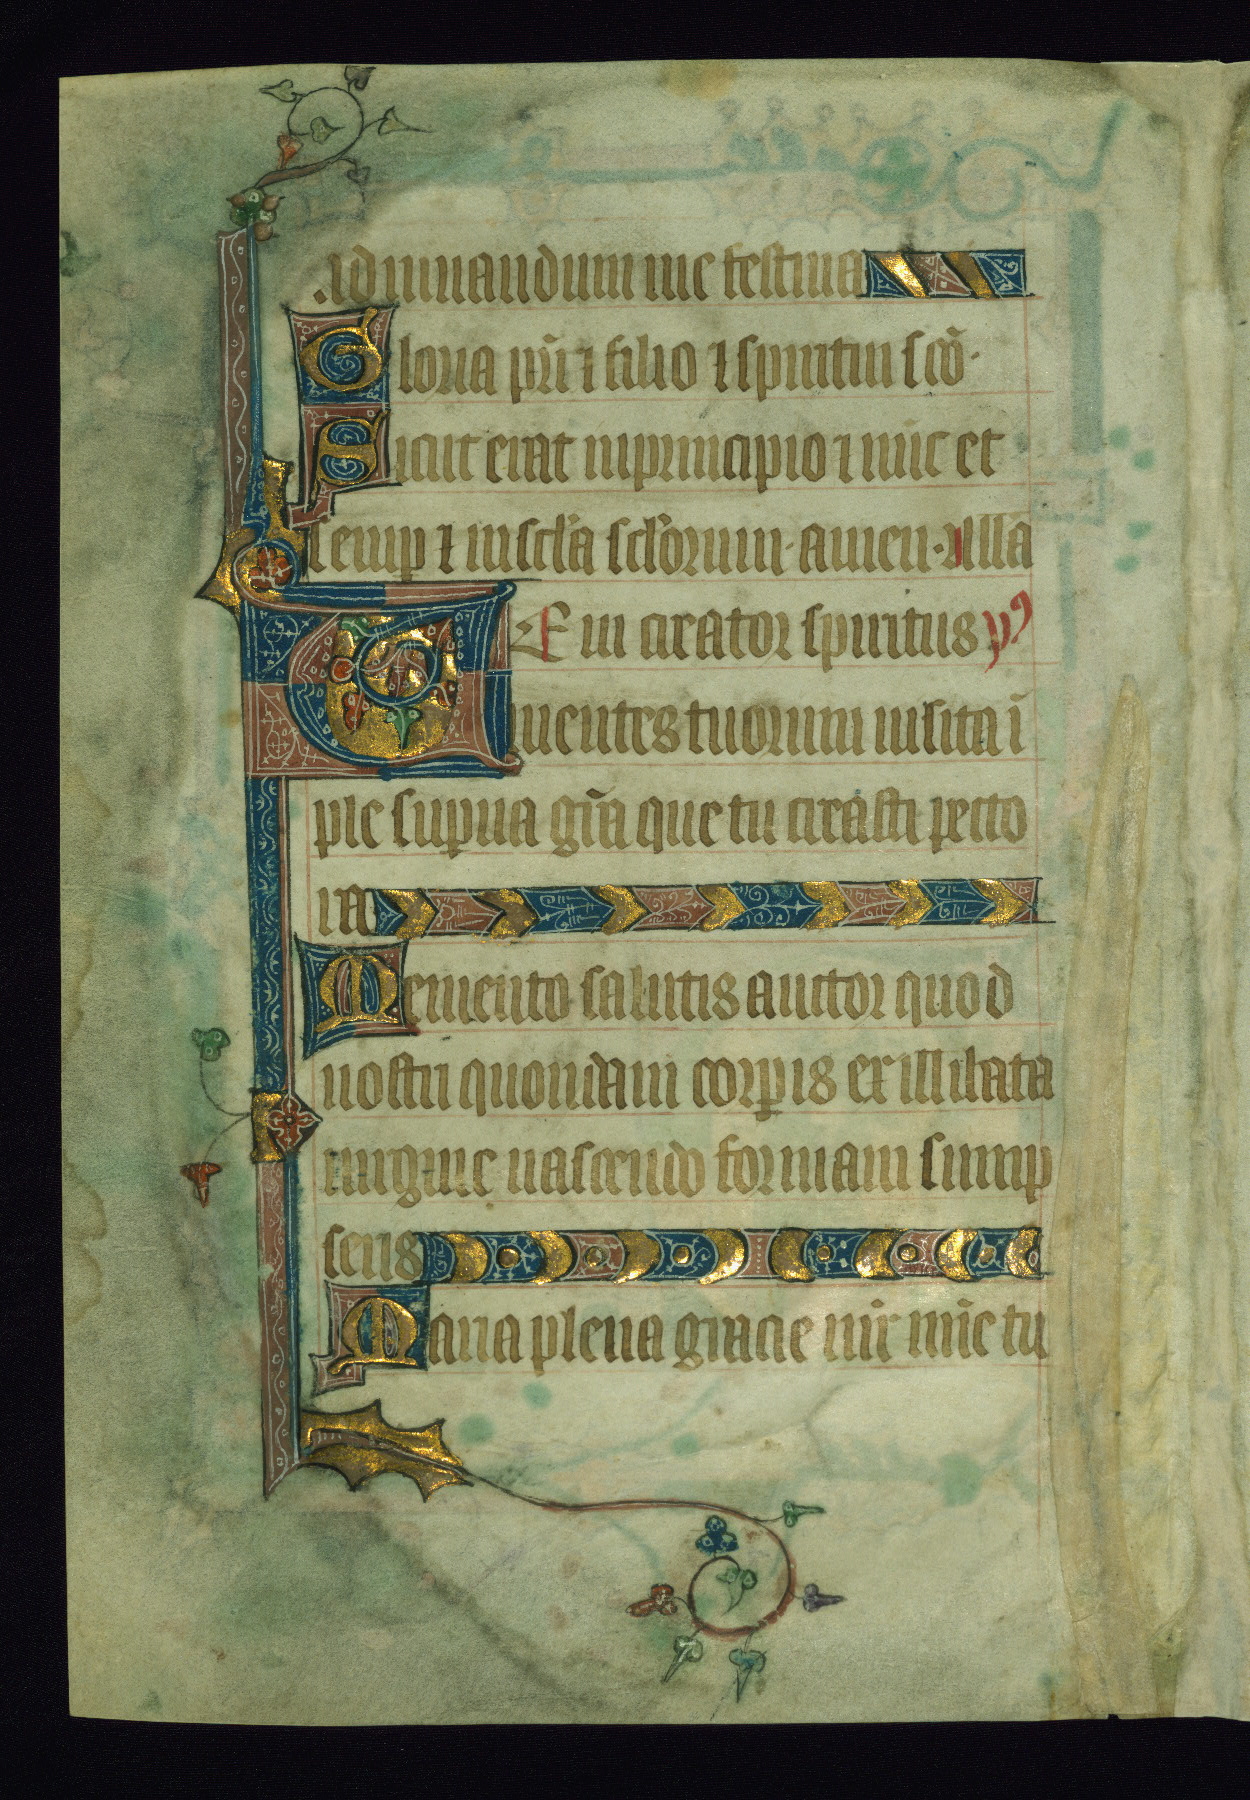 ad iuuandum me festina
Gloria pr̃i ⁊ filio ⁊ spiritui sc̃o.
Sicut erat inprincipio ⁊ nũc et
semp ⁊ in scl̃a scl̃orum. amen. alla
UEni creator spiritus yꝰ
mentes tuorum uisita ĩ
ple superna gr̃a que tu creasti pecto
ra
Memento salutis auctor quod
nostri quondam corpis ex illibata
uirgine nascendo formam sump
seris
Maria plena gracie mr̃ mĩe tu